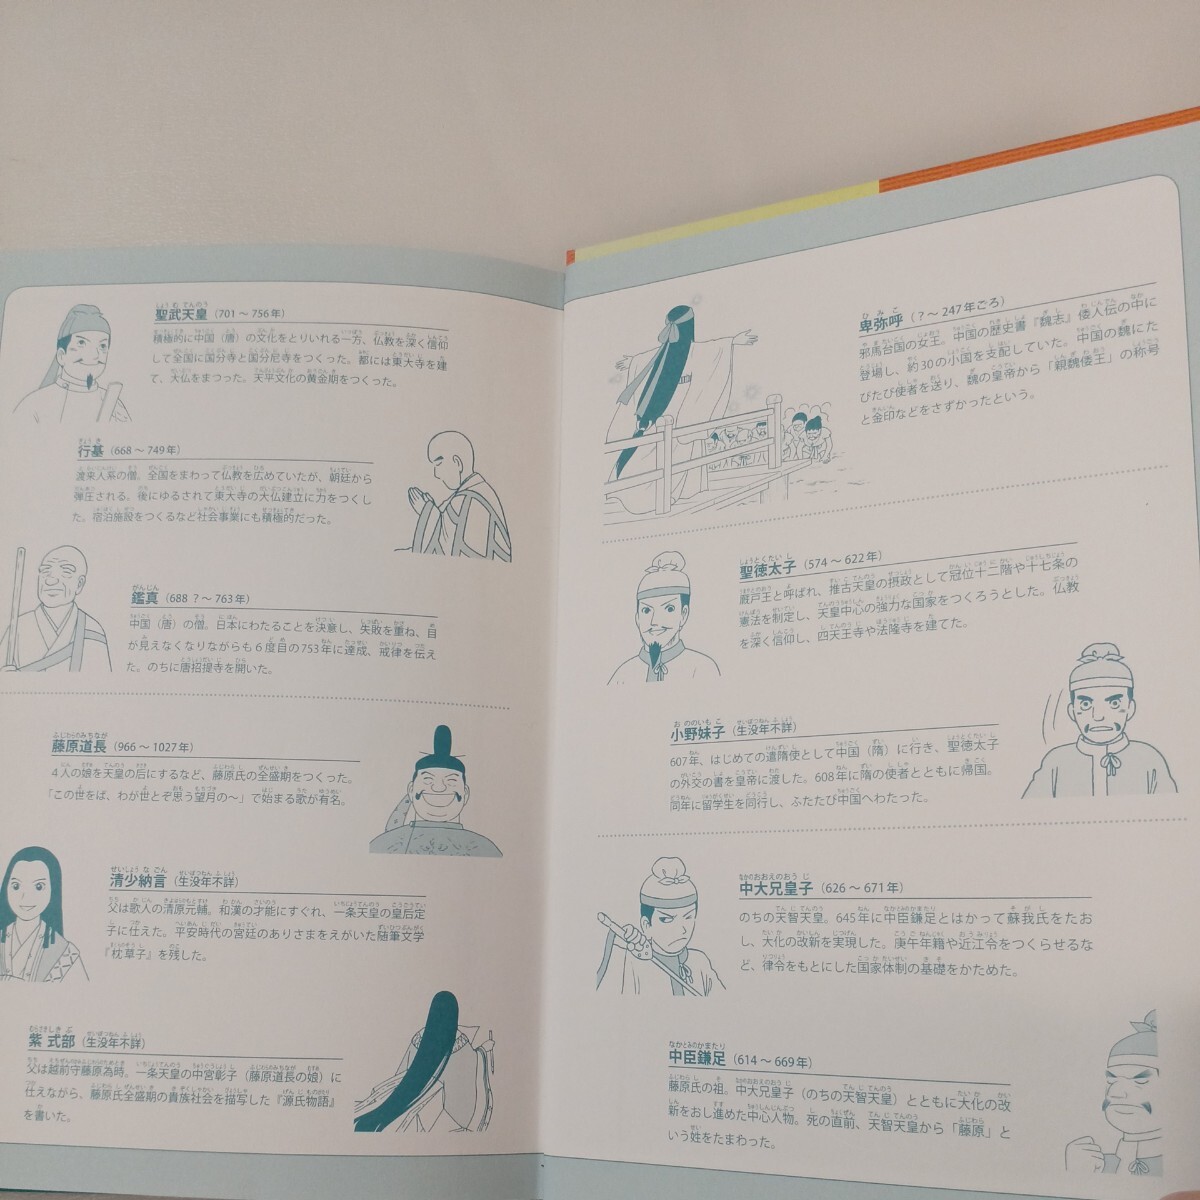 聖武天皇（701～756年）
積極的に中国（唐）の文化をとりいれる一方、仏教を深く信仰
して全国に国分寺と国分尼寺をつくった。都には東大寺を建
て、大仏をまつった。天平文化の黄金期をつくった。
行基（668～749年）
渡来人系の僧。全国をまわって仏教を広めていたが、朝廷から
弾圧される。後にゆるされて東大寺の大仏建立に力をつくし
た。宿泊施設をつくるなど社会事業にも積極的だった。
鑑真（688？～763年）
中国（唐）の僧。日本にわたることを決意し、失敗を重ね、目
が見えなくなりながらも6度目の753年に達成、戒律を伝え
た。のちに唐招提寺を開いた。
藤原道長（966～1027年）
4人の娘を天皇の后にするなど、藤原氏の全盛期をつくった。
「この世をば、わが世とぞ思う望月の～」で始まる歌が有名。
清少納言（生没年不詳）
父は歌人の清原元輔。和漢の才能にすぐれ、一条天皇の皇后定
子に仕えた。平安時代の宮廷のありさまをえがいた随筆文学
『枕草子』を残した。
紫式部（生没年不詳）
父は越前守藤原為時。一条天皇の中宮彰子（藤原道長の娘）に
仕えながら、藤原氏全盛期の貴族社会を描写した『源氏物語』
を書いた。
卑弥呼（？～247年ごろ）
邪馬台国の女王。中国の歴史書『魏志』倭人伝の中に
登場し、約30の小国を支配していた。中国の魏にた
びたび使者を送り、魏の皇帝から「親魏倭王」の称号
と金印などをさずかったという。
聖徳太子（574～622年）
厩戸王と呼ばれ、推古天皇の摂政として冠位十二階や十七条の
憲法を制定し、天皇中心の強力な国家をつくろうとした。仏教
を深く信仰し、四天王寺や法隆寺を建てた。
小野妹子（生没年不詳）
607年、はじめての遣隋使として中国（隋）に行き、聖徳太子
の外交の書を皇帝に渡した。608年に隋の使者とともに帰国。
同年に留学生を同行し、ふたたび中国へわたった。
中大兄皇子（626～671年）
のちの天智天皇。645年に中臣鎌足とはかって蘇我氏をたお
し、大化の改新を実現した。庚午年籍や近江令をつくらせるな
ど、律令をもとにした国家体制の基礎をかためた。
中臣鎌足（614～669年）
藤原氏の祖。中大兄皇子（のちの天智天皇）とともに大化の改
新をおし進めた中心人物。死の直前、天智天皇から「藤原」と
いう姓をたまわった。